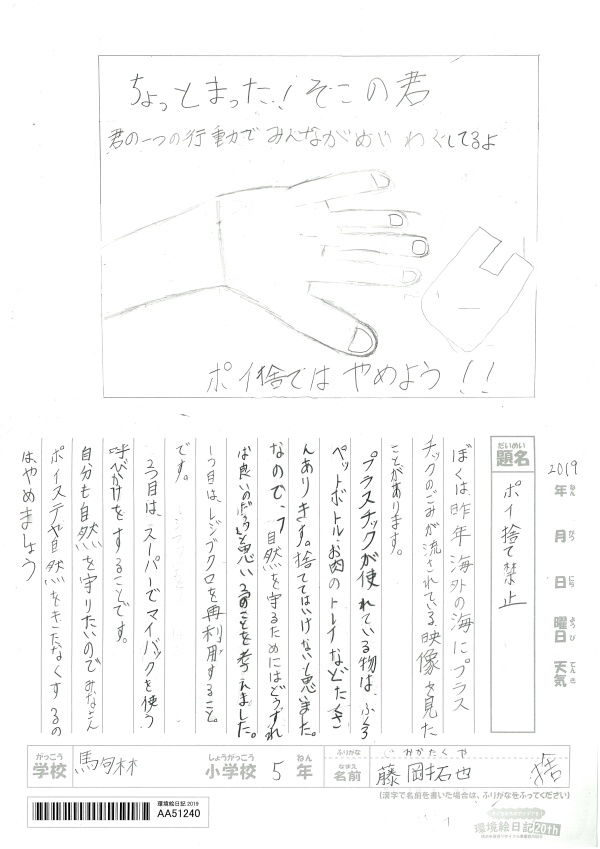 ちょっとまった！そこの君
君の一つの行動でみんながめいわくしてるよ
ポイ捨てはやめよう！！
2019年 月 日 曜日 天気
ねん がつ にち ようび てんき
だいめい
題名
ポイ捨て禁止
ぼくは、昨年海外の海にプラス
チックのごみが流されている、映像を見た
ことがあります。
プラスチックが使れている物は、ふくろ
ペットボトル・お肉のトレイなどたくさ
んあります。捨ててはいけないと思いました。
なので、自然を守るためにはどうすれ
ば良いのだろうと思い2つのことを考えました。
1つ目は、レジブクロを再利用すること。
です。
2つ目は、スーパーでマイバックを使う
呼びかけをすることです。
自分も自然を守りたいのでみなさん
ポイステや自然をキたなくするの
はやめましょう
がっこう
学校
しょうがっこう
小学校
5
ねん
年
ふりがな
おかたくや
なまえ
名前
藤岡拓也
(漢字で名前を書いた場合は、ふりがなをふってください)
環境絵日記2019
AA51240
環境絵日記20th